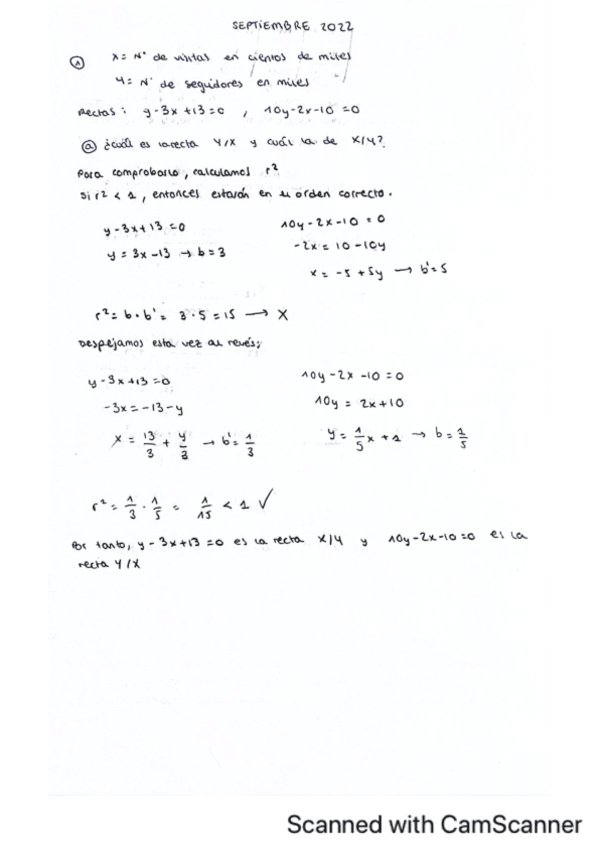 SEPTIEMBRE 2022
① X = Nº de visitas en cientos de miles
Y = Nº de seguidores en miles
Rectas: y - 3x + 13 = 0 , 10y - 2x - 10 = 0
ⓐ ¿cuál es la recta Y/X y cuál la de X/Y?
Para comprobarlo, calculamos r²
Si r² < 1, entonces estarán en su orden correcto.
y - 3x + 13 = 0 10y - 2x - 10 = 0
y = 3x - 13 → b = 3 -2x = 10 - 10y
x = -5 + 5y → b' = 5
r² = b · b' = 3 · 5 = 15 → X
Despejamos esta vez al revés;
y - 3x + 13 = 0 10y - 2x - 10 = 0
-3x = -13 - y 10y = 2x + 10
x = 13/3 + y/3 → b' = 1/3 y = 1/5 x + 1 → b = 1/5
r² = 1/3 · 1/5 = 1/15 < 1 ✓
Por tanto, y - 3x + 13 = 0 es la recta X/Y y 10y - 2x - 10 = 0 es la
recta Y/X
Scanned with CamScanner